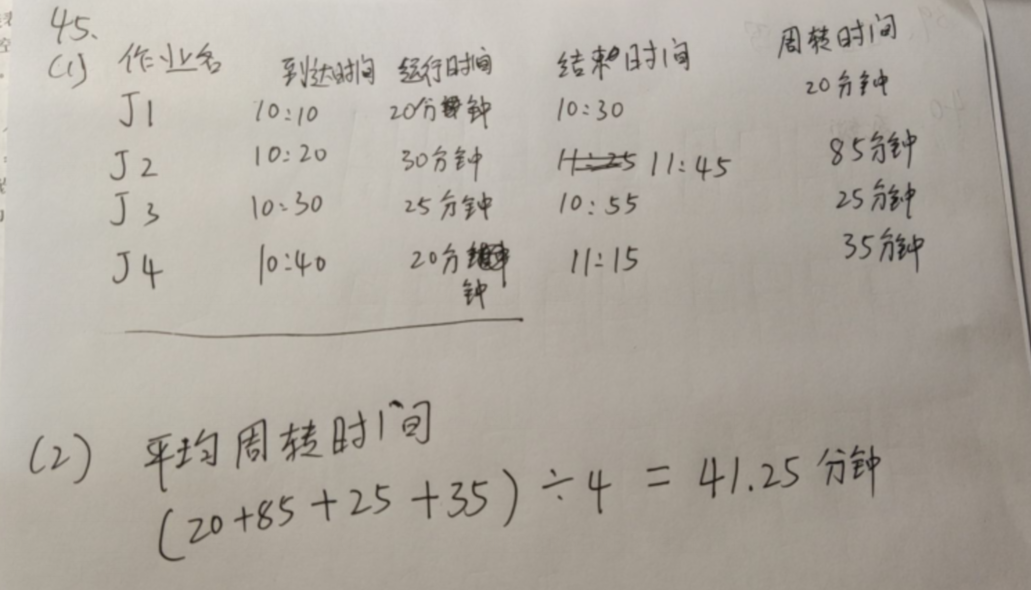 45.
(1) 作业名 到达时间 运行时间 结束时间 周转时间
J1 10:10 20分钟 10:30 20分钟
J2 10:20 30分钟 11:25 11:45 85分钟
J3 10:30 25分钟 10:55 25分钟
J4 10:40 20分 11:15 35分钟
钟
(2) 平均周转时间
(20+85+25+35)÷4=41.25分钟